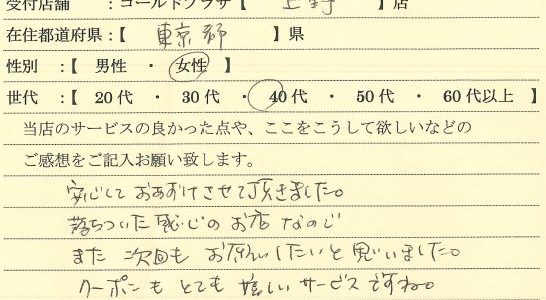 受付店舗 :ゴールドプラザ【 上野 】店
在住都道府県:【 東京都 】県
性別 :【 男性 ・ 女性 】
世代 :【 20代 ・ 30代 ・ 40代 ・ 50代 ・ 60代以上 】
当店のサービスの良かった点や、ここをこうして欲しいなどの
ご感想をご記入お願い致します。
安心しておあずけさせて頂きました。
落ちついた感じのお店なので
また 次回も お願いしたいと思いました。
クーポンも とても 嬉しい サービス ですね。